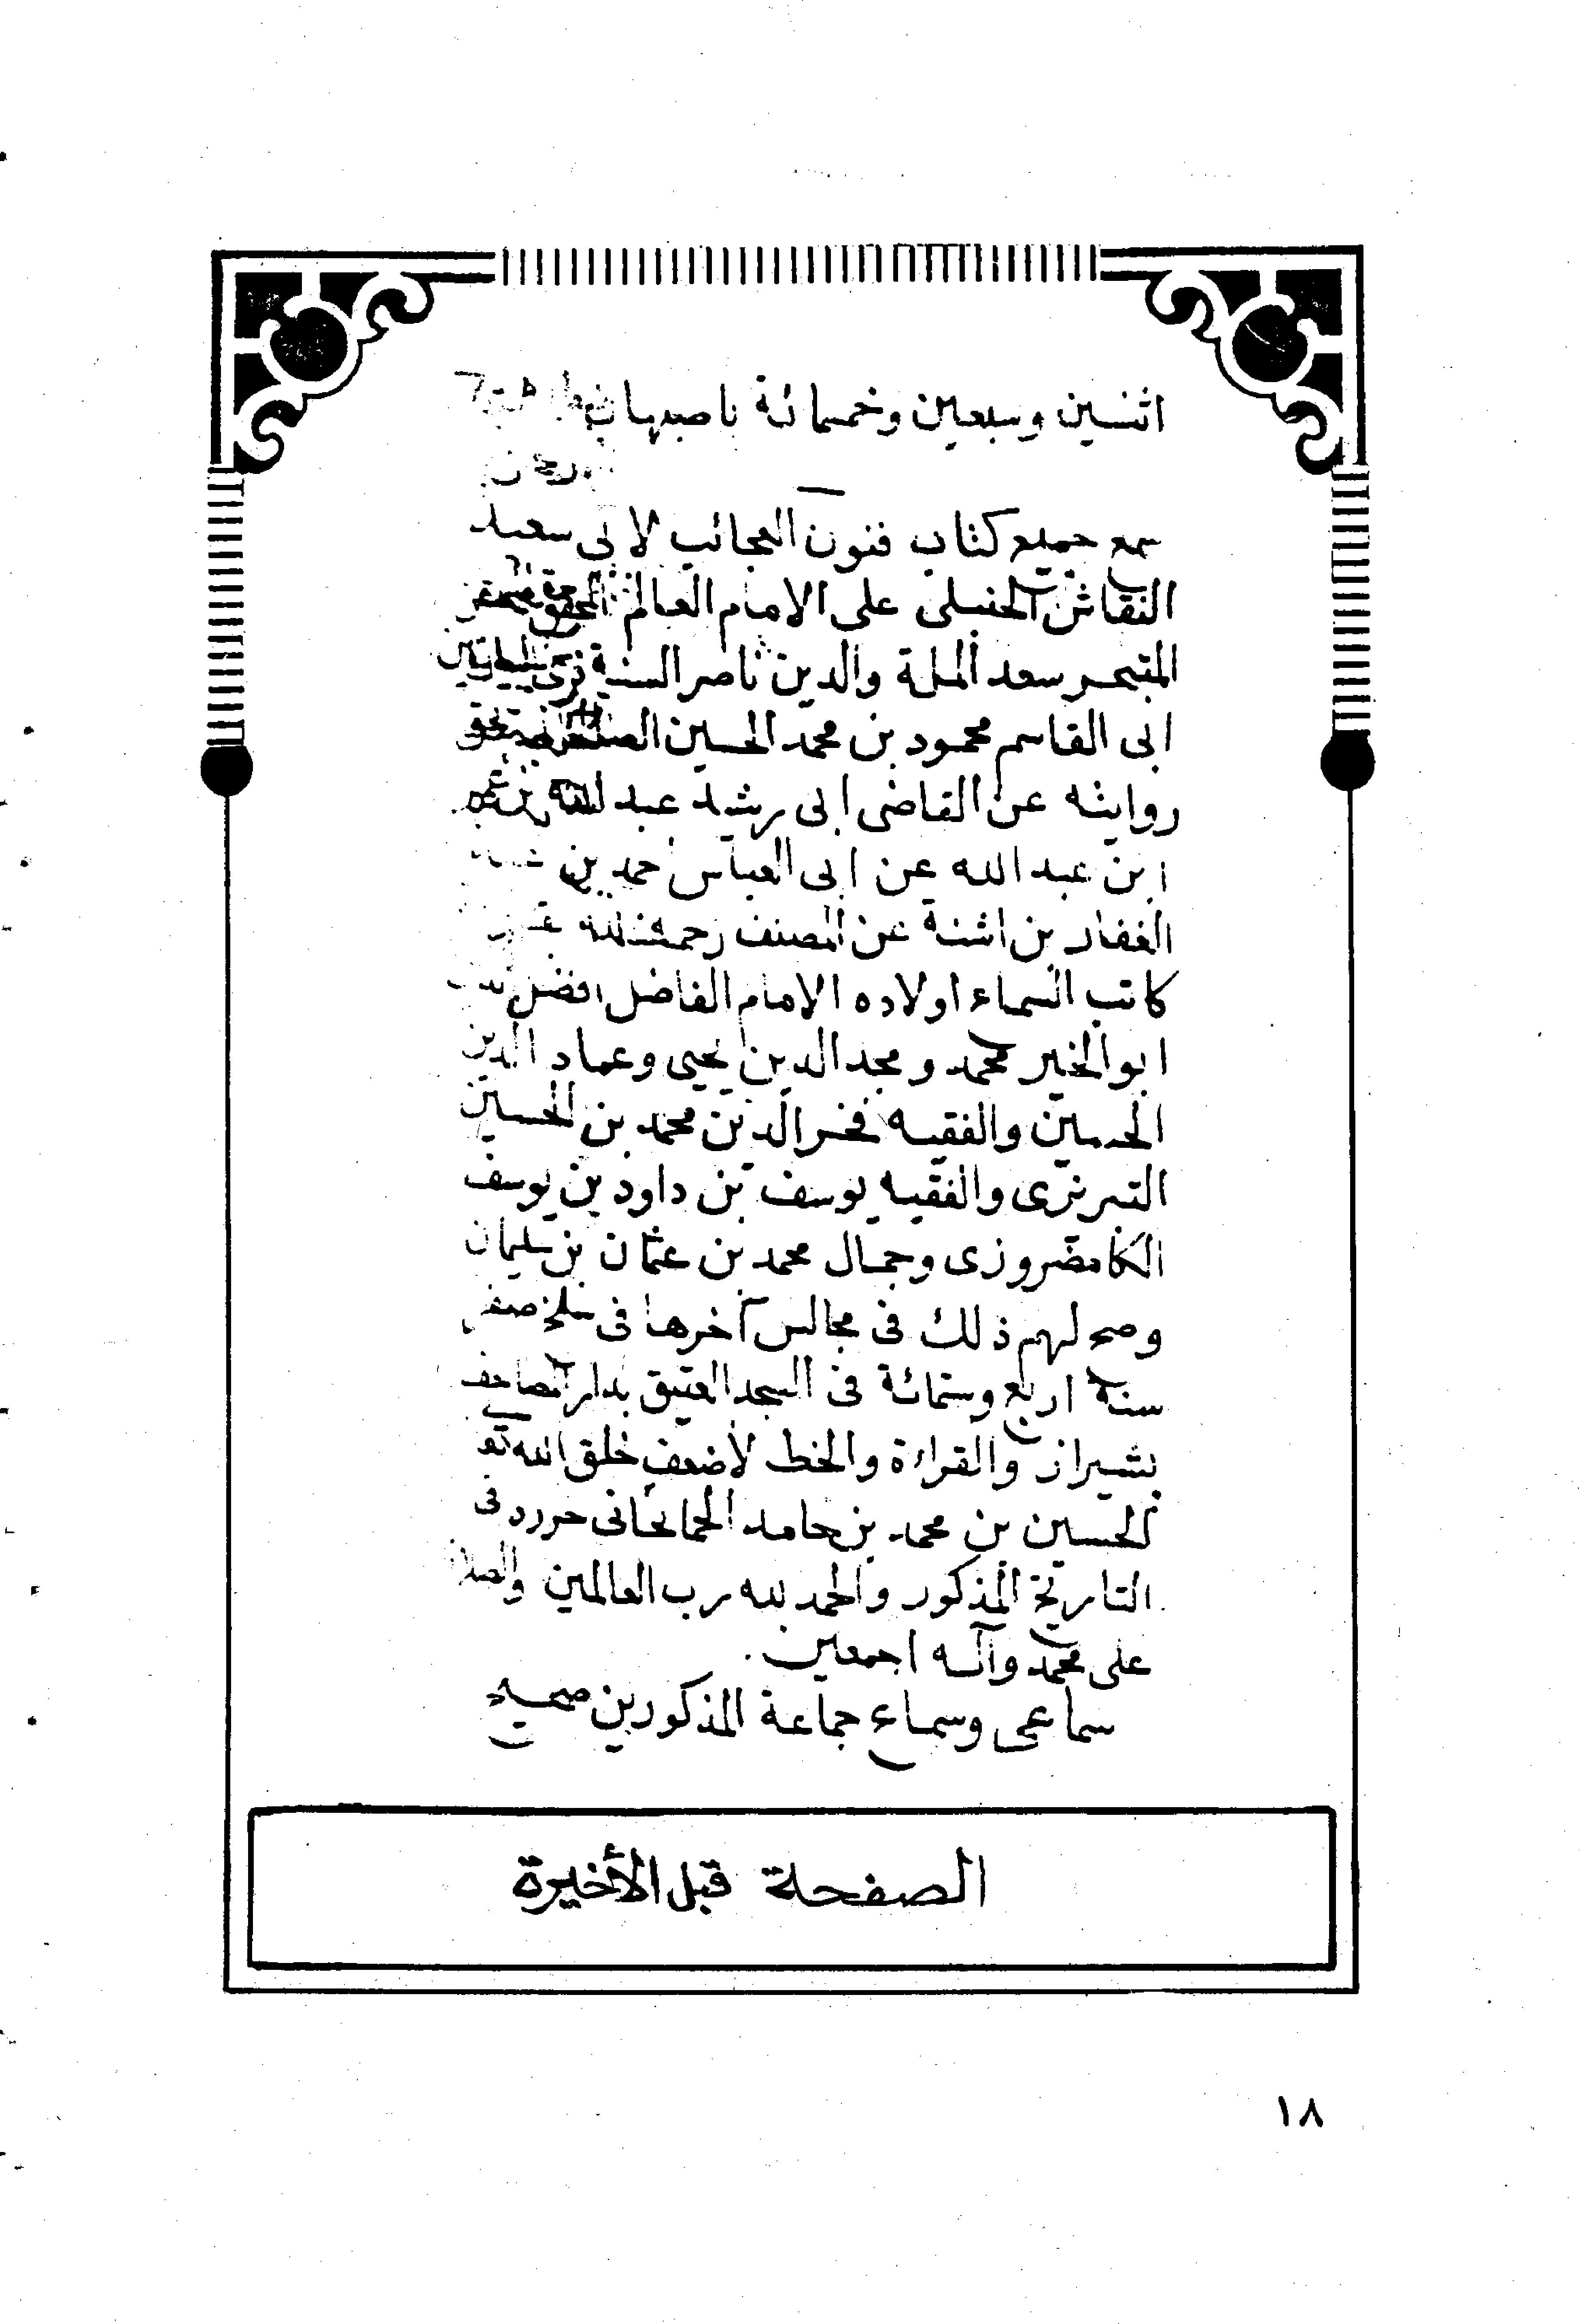 اثنين وسبعين وخمسمائة باصبهان
سمع جميع كتاب فنون العجائب لابى سعيد
النقاش الحنبلى على الامام العالم المحقق
المتبحر سعد الملة والدين ناصر السنة
ابى القاسم محمود بن محمد الحسين
روايته عن القاضى ابى رشيد عبد الله بن
ابن عبد الله عن ابى العباس احمد بن
الغفار بن اشتة عن المصنف رحمة الله
كاتب السماء اولاده الامام الفاضل افضل
ابو الخير محمد ومجد الدين يحيى وعماد الدين
الحسين والفقيه فخر الدين محمد بن الحسين
التبريزى والفقيه يوسف بن داود بن يوسف
وجمال محمد بن عثمان بن سليمان
وصح لهم ذلك فى مجالس آخرها فى سلخ صفر
سنة اربع وستمائة فى المسجد العتيق بدار المصاحف
بشيراز والقراءة والخط لأضعف خلق الله تع
الحسين بن محمد بن حامد
التاريخ المذكور والحمد لله رب العالمين والصلاة
على محمد وآله اجمعين.
سماعى وسماع جماعة المذكورين صحيح
الصفحة قبل الأخيرة
١٨